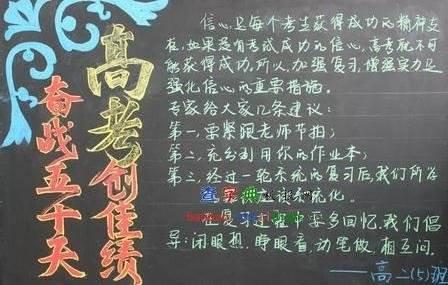 奋战五十天
高考创佳绩
信心,是每个考生获得成功的精神支
柱,如果没有考试成功的信心,高考就不可
能获得成功,所以,加强复习,增强实力是
强化信心的重要措施。
专家给大家几条建议:
第一,要紧跟老师节拍;
第二,充分利用你的作业本;
第三,经过一轮系统的复习后,我们所学
系统化。
在复习过程中要多回忆,我们倡
导:闭眼想,睁眼看,动笔做,相互问。
——高二(5)班
查字典